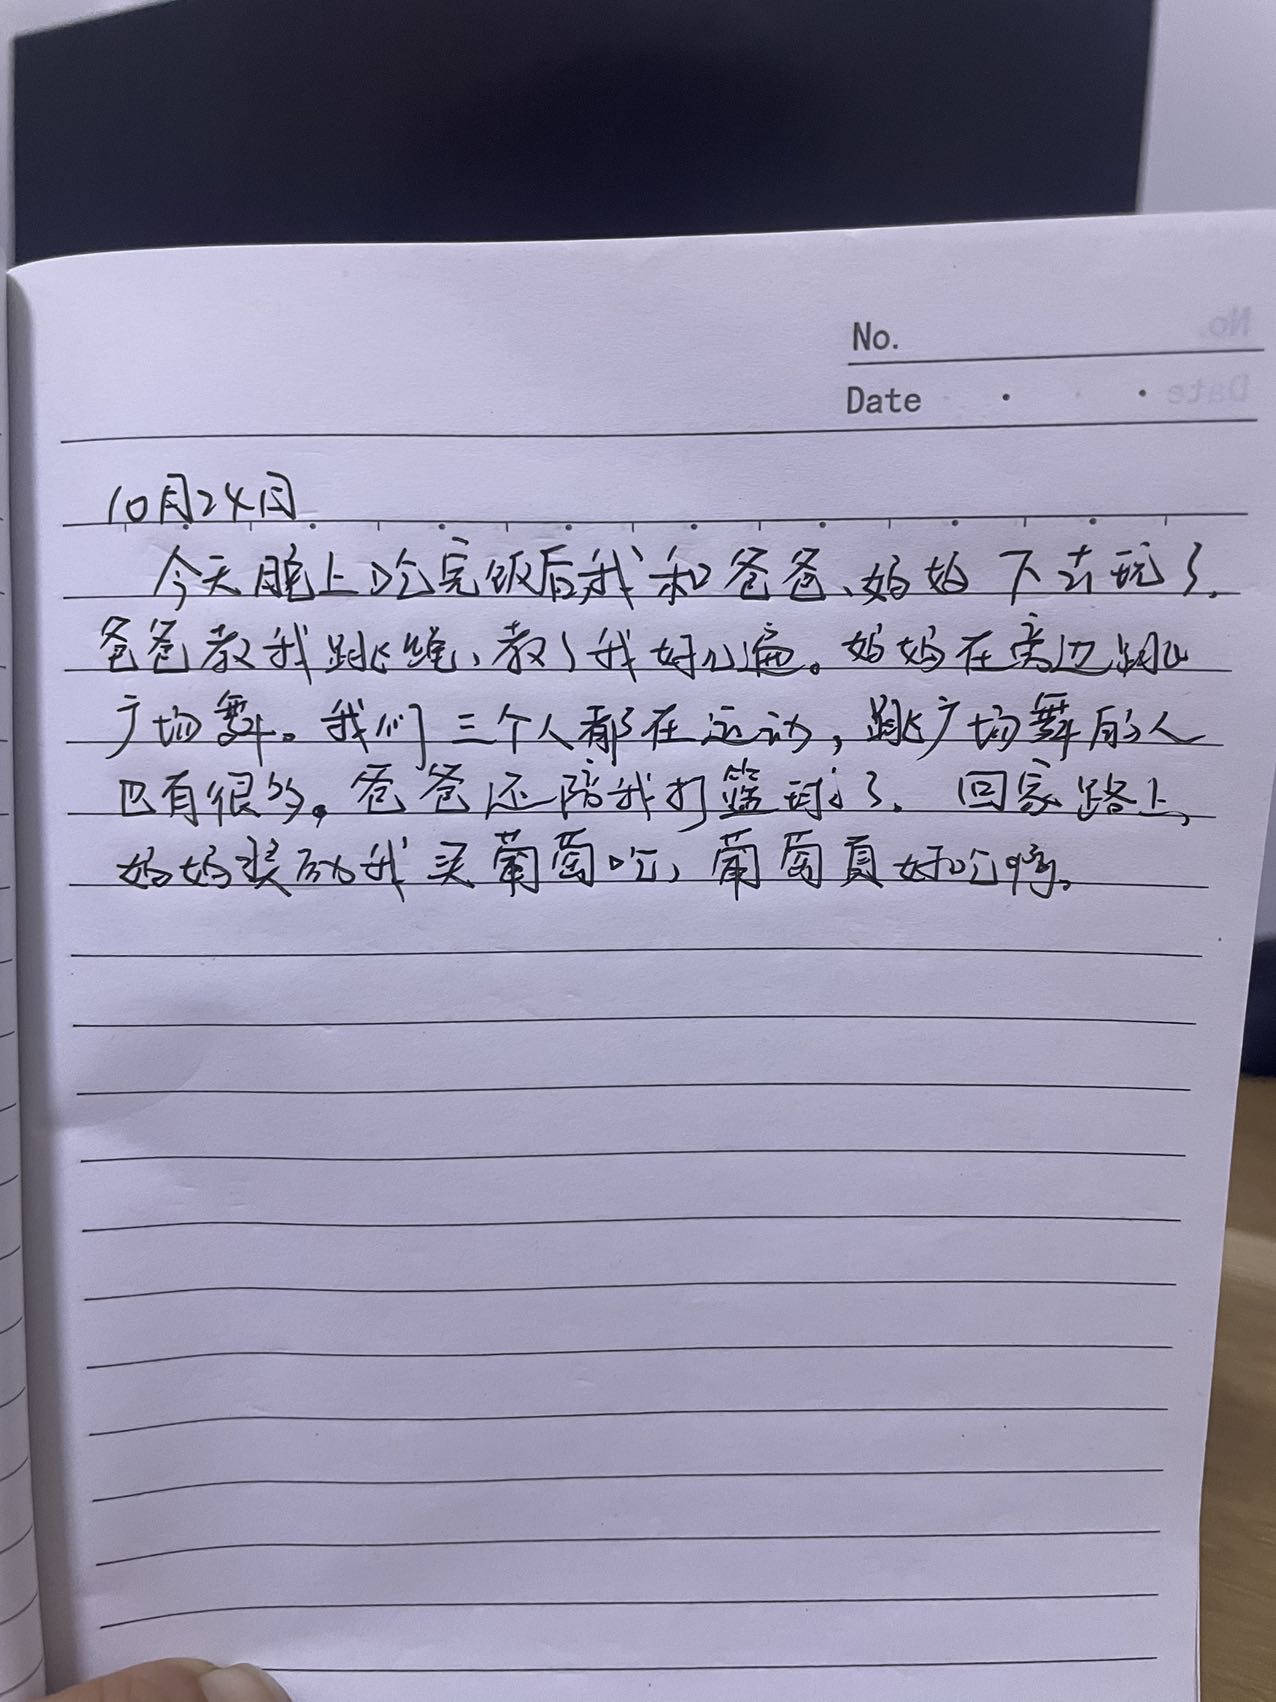 No.
Date
10月24日
今天晚上吃完饭后我和爸爸、妈妈下去玩了.
爸爸教我跳绳,教了我好几遍。妈妈在旁边跳
广场舞。我们三个人都在运动,跳广场舞的人
也有很多。爸爸还陪我打篮球了. 回家路上,
妈妈奖励我买葡萄吃,葡萄真好吃啊。